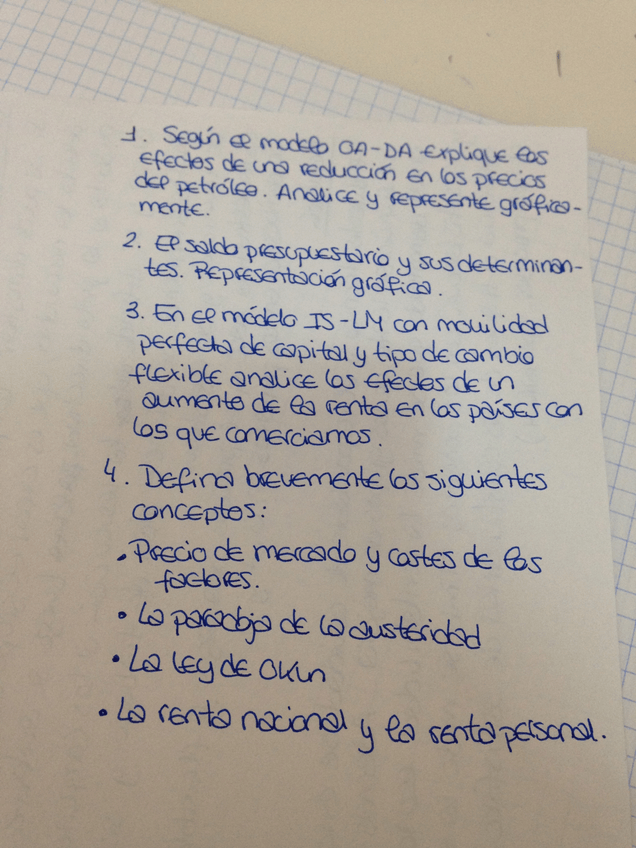 1. Según el modelo OA-DA explique los
efectos de una reducción en los precios
del petróleo. Analice y represente gráfica-
mente.
2. El saldo presupuestario y sus determinan-
tes. Representación gráfica.
3. En el módelo IS-LM con movilidad
perfecta de capital y tipo de cambio
flexible analice los efectos de un
aumento de la renta en los países con
los que comerciamos.
4. Defina brevemente los siguientes
conceptos:
• Precio de mercado y costes de los
factores.
• La paradoja de la austeridad
• La ley de Okun
• La renta nacional y la renta personal.